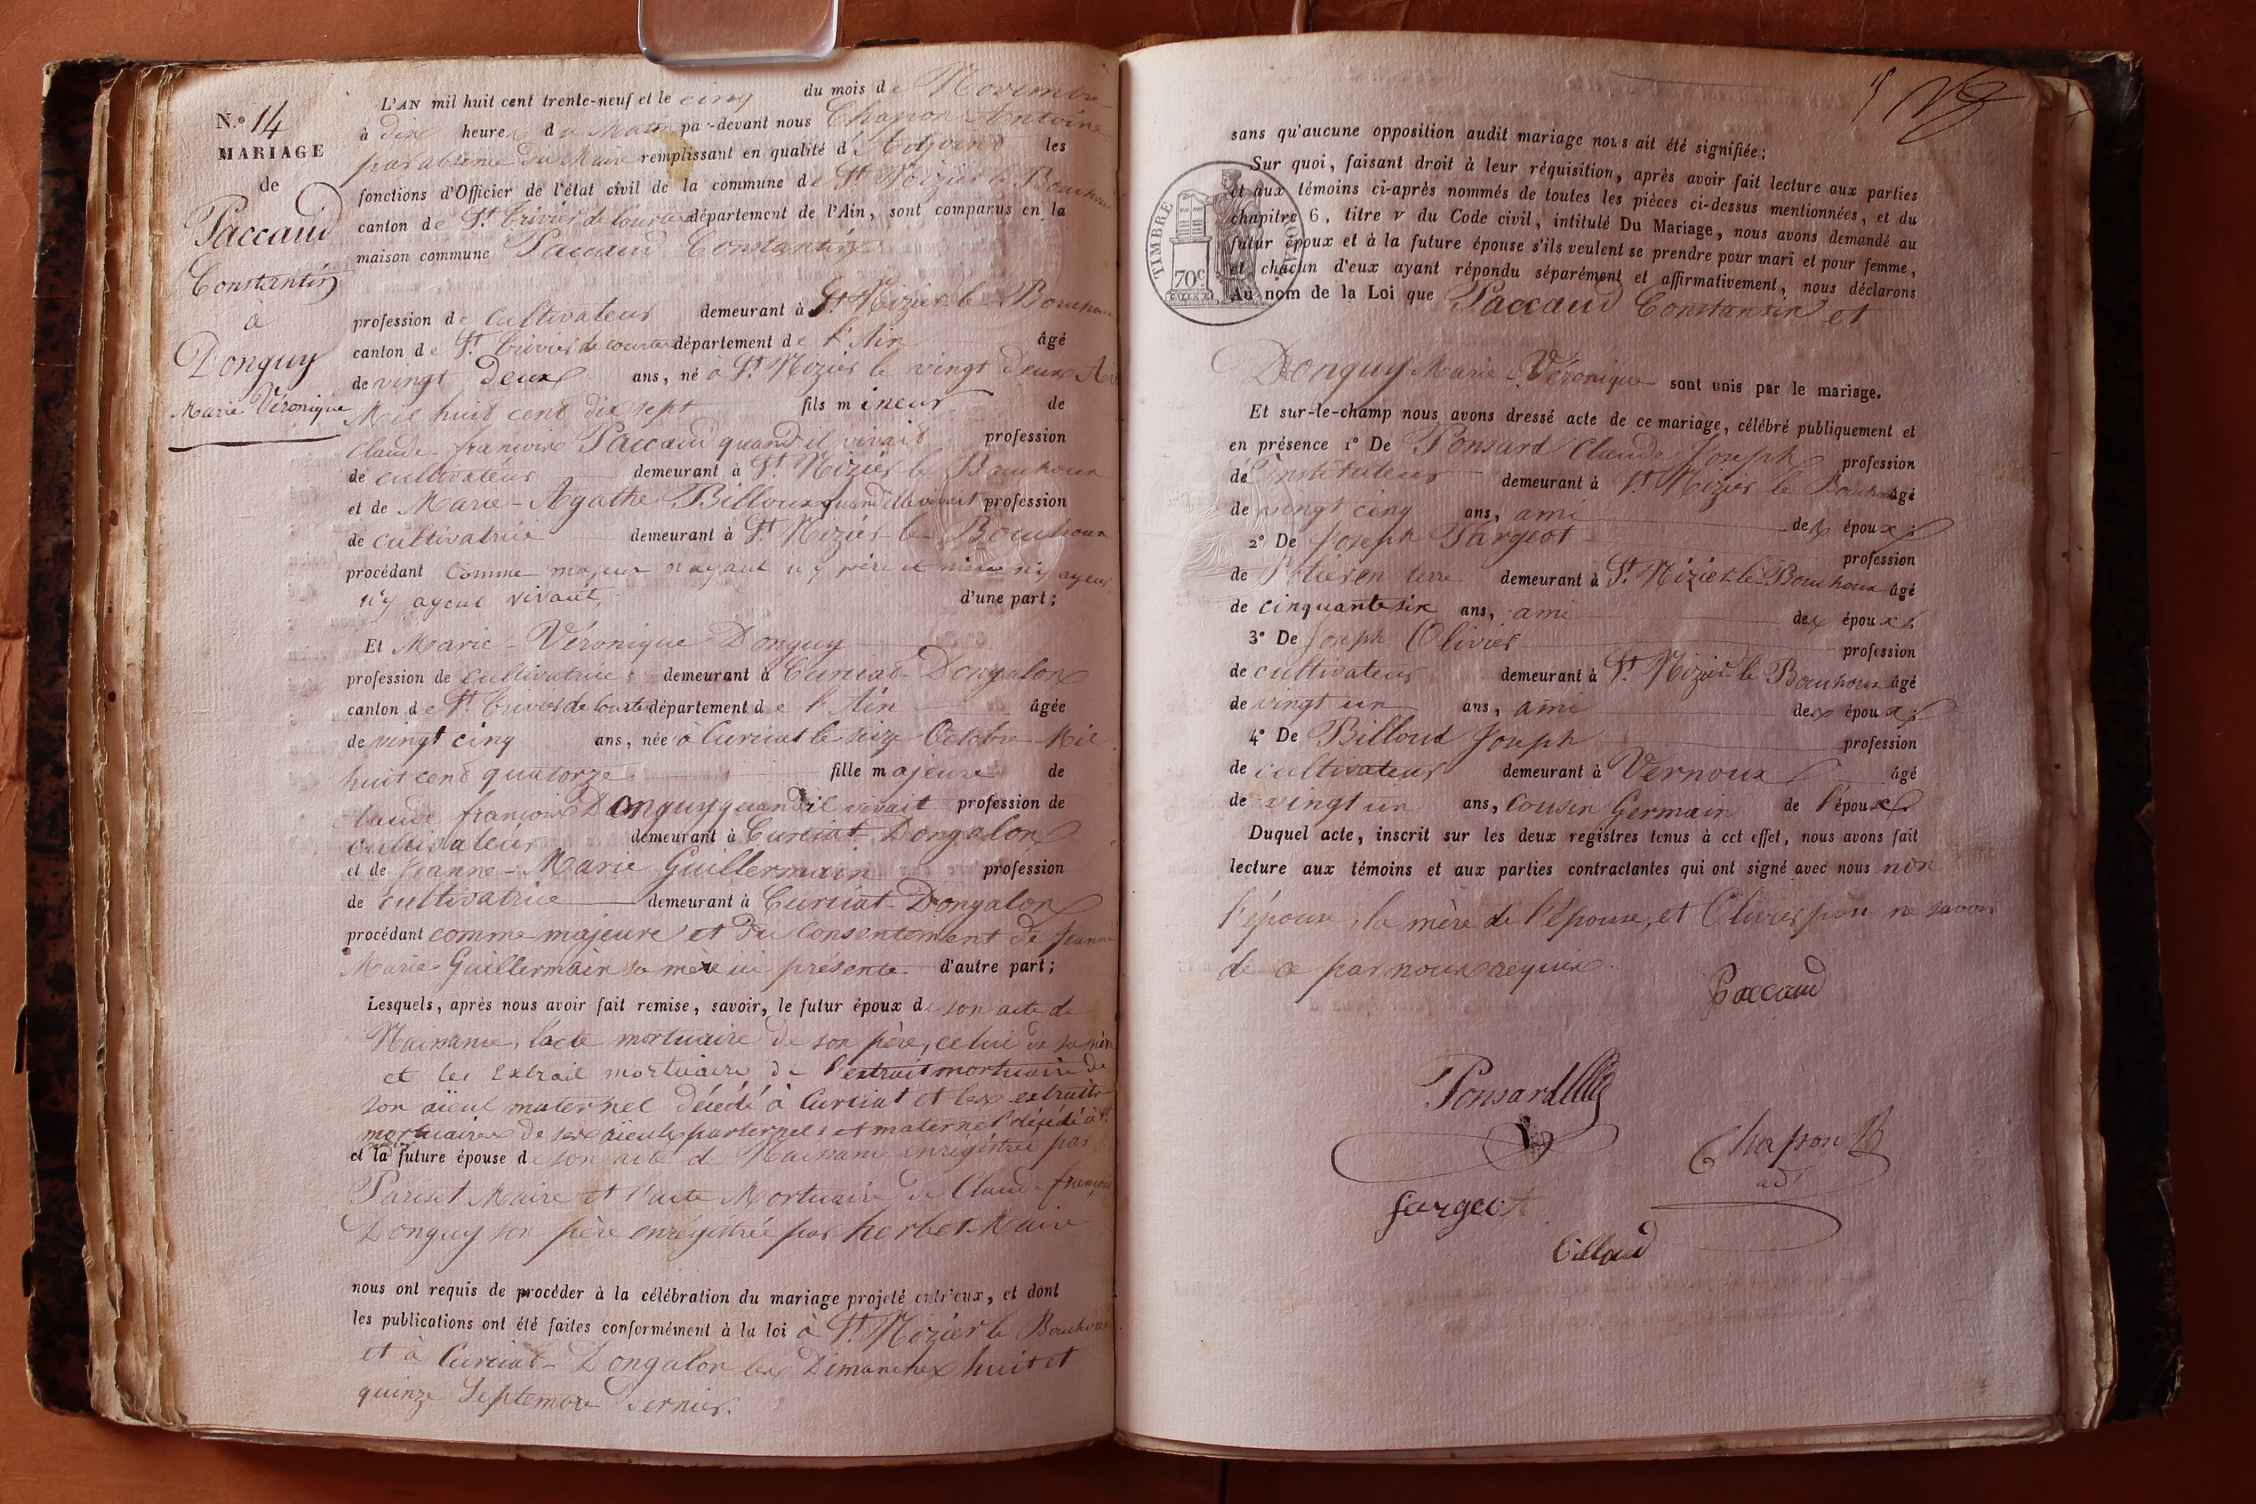 N.º 14
MARIAGE
de
Paccaud
Constantin
à
Donguy
Marie Véronique
L'AN mil huit cent trente-neuf et le cinq du mois de Novembre
à dix heures du Matin par-devant nous Chapon Antoine
par absence du Maire remplissant en qualité d'Adjoind les
fonctions d'Officier de l'état civil de la commune de St Nizier le Bouchoux
canton de St Trivier de Courtes département de l'Ain, sont comparus en la
maison commune Paccaud Constantin
profession de Cultivateur demeurant à St Nizier le Bouchoux
canton de St Trivier de Courtes département de l'Ain âgé
de vingt deux ans, né à St Nizier le vingt deux
Mil huit cent dix sept fils mineur de
Claude françois Paccaud quand il vivait profession
de cultivateur demeurant à St Nizier le Bouchoux
et de Marie-Agathe Billoux quand elle vivait profession
de cultivatrice demeurant à St Nizier le Bouchoux
procédant comme majeur n'ayant n'y père et mère n'y ayeux
n'y ayeul vivant, d'une part;
Et Marie-Véronique Donguy
profession de cultivatrice demeurant à Curciat-Dongalon
canton de St Trivier de Courtes département de l'Ain âgée
de vingt cinq ans, née à Curciat le seize Octobre Mil
huit cent quatorze fille majeure de
Claude françois Donguy quand il vivait profession de
cultivateur demeurant à Curciat-Dongalon
et de Jeanne-Marie Guillermain profession
de cultivatrice demeurant à Curciat-Dongalon
procédant comme majeure et du Consentement de Jeanne
Marie Guillermain sa mère ici présente d'autre part;
Lesquels, après nous avoir fait remise, savoir, le futur époux de son acte de
Naissance, l'acte mortuaire de son père, celui de sa mère
et les Extrait mortuaire de l'extrait mortuaire de
son aïeul maternel décédé à Curciat et les extraits
mortuaires de ses aïeuls parternels et maternel décédé à St
et la future épouse de son acte de Naissance enregistrée par
Pariset Maire et l'acte Mortuaire de Claude françois
Donguy son père enregistrée par herbet Maire
nous ont requis de procéder à la célébration du mariage projeté entr'eux, et dont
les publications ont été faites conformément à la loi à St Nizier le Bouchoux
et à Curciat-Dongalon les Dimanches huit et
quinze Septembre dernier.
sans qu'aucune opposition audit mariage nous ait été signifiée;
Sur quoi, faisant droit à leur réquisition, après avoir fait lecture aux parties
et aux témoins ci-après nommés de toutes les pièces ci-dessus mentionnées, et du
chapitre 6, titre v du Code civil, intitulé Du Mariage, nous avons demandé au
futur époux et à la future épouse s'ils veulent se prendre pour mari et pour femme,
et chacun d'eux ayant répondu séparément et affirmativement, nous déclarons
Au nom de la Loi que Paccaud Constantin et
TIMBRE ROYAL
70c
Donguy Marie-Véronique sont unis par le mariage.
Et sur-le-champ nous avons dressé acte de ce mariage, célébré publiquement et
en présence 1º De Ponsard Claude Joseph profession
de Instituteur demeurant à St Nizier le Bouchoux âgé
de vingt cinq ans, ami des époux;
2º De Joseph Fargeot profession
de Potier en terre demeurant à St Nizier le Bouchoux âgé
de cinquante six ans, ami des époux;
3º De Joseph Olivier profession
de cultivateur demeurant à St Nizier le Bouchoux âgé
de vingt un ans, ami des époux;
4º De Billoud Joseph profession
de cultivateur demeurant à Vernoux âgé
de vingt un ans, Cousin Germain de l'époux.
Duquel acte, inscrit sur les deux registres tenus à cet effet, nous avons fait
lecture aux témoins et aux parties contractantes qui ont signé avec nous non
l'épouse, la mère de l'épouse, et Olivier pour ne savoir
de ce par nous requis.
Paccaud
Ponsard
Chapon
adt
fargeot
billoud